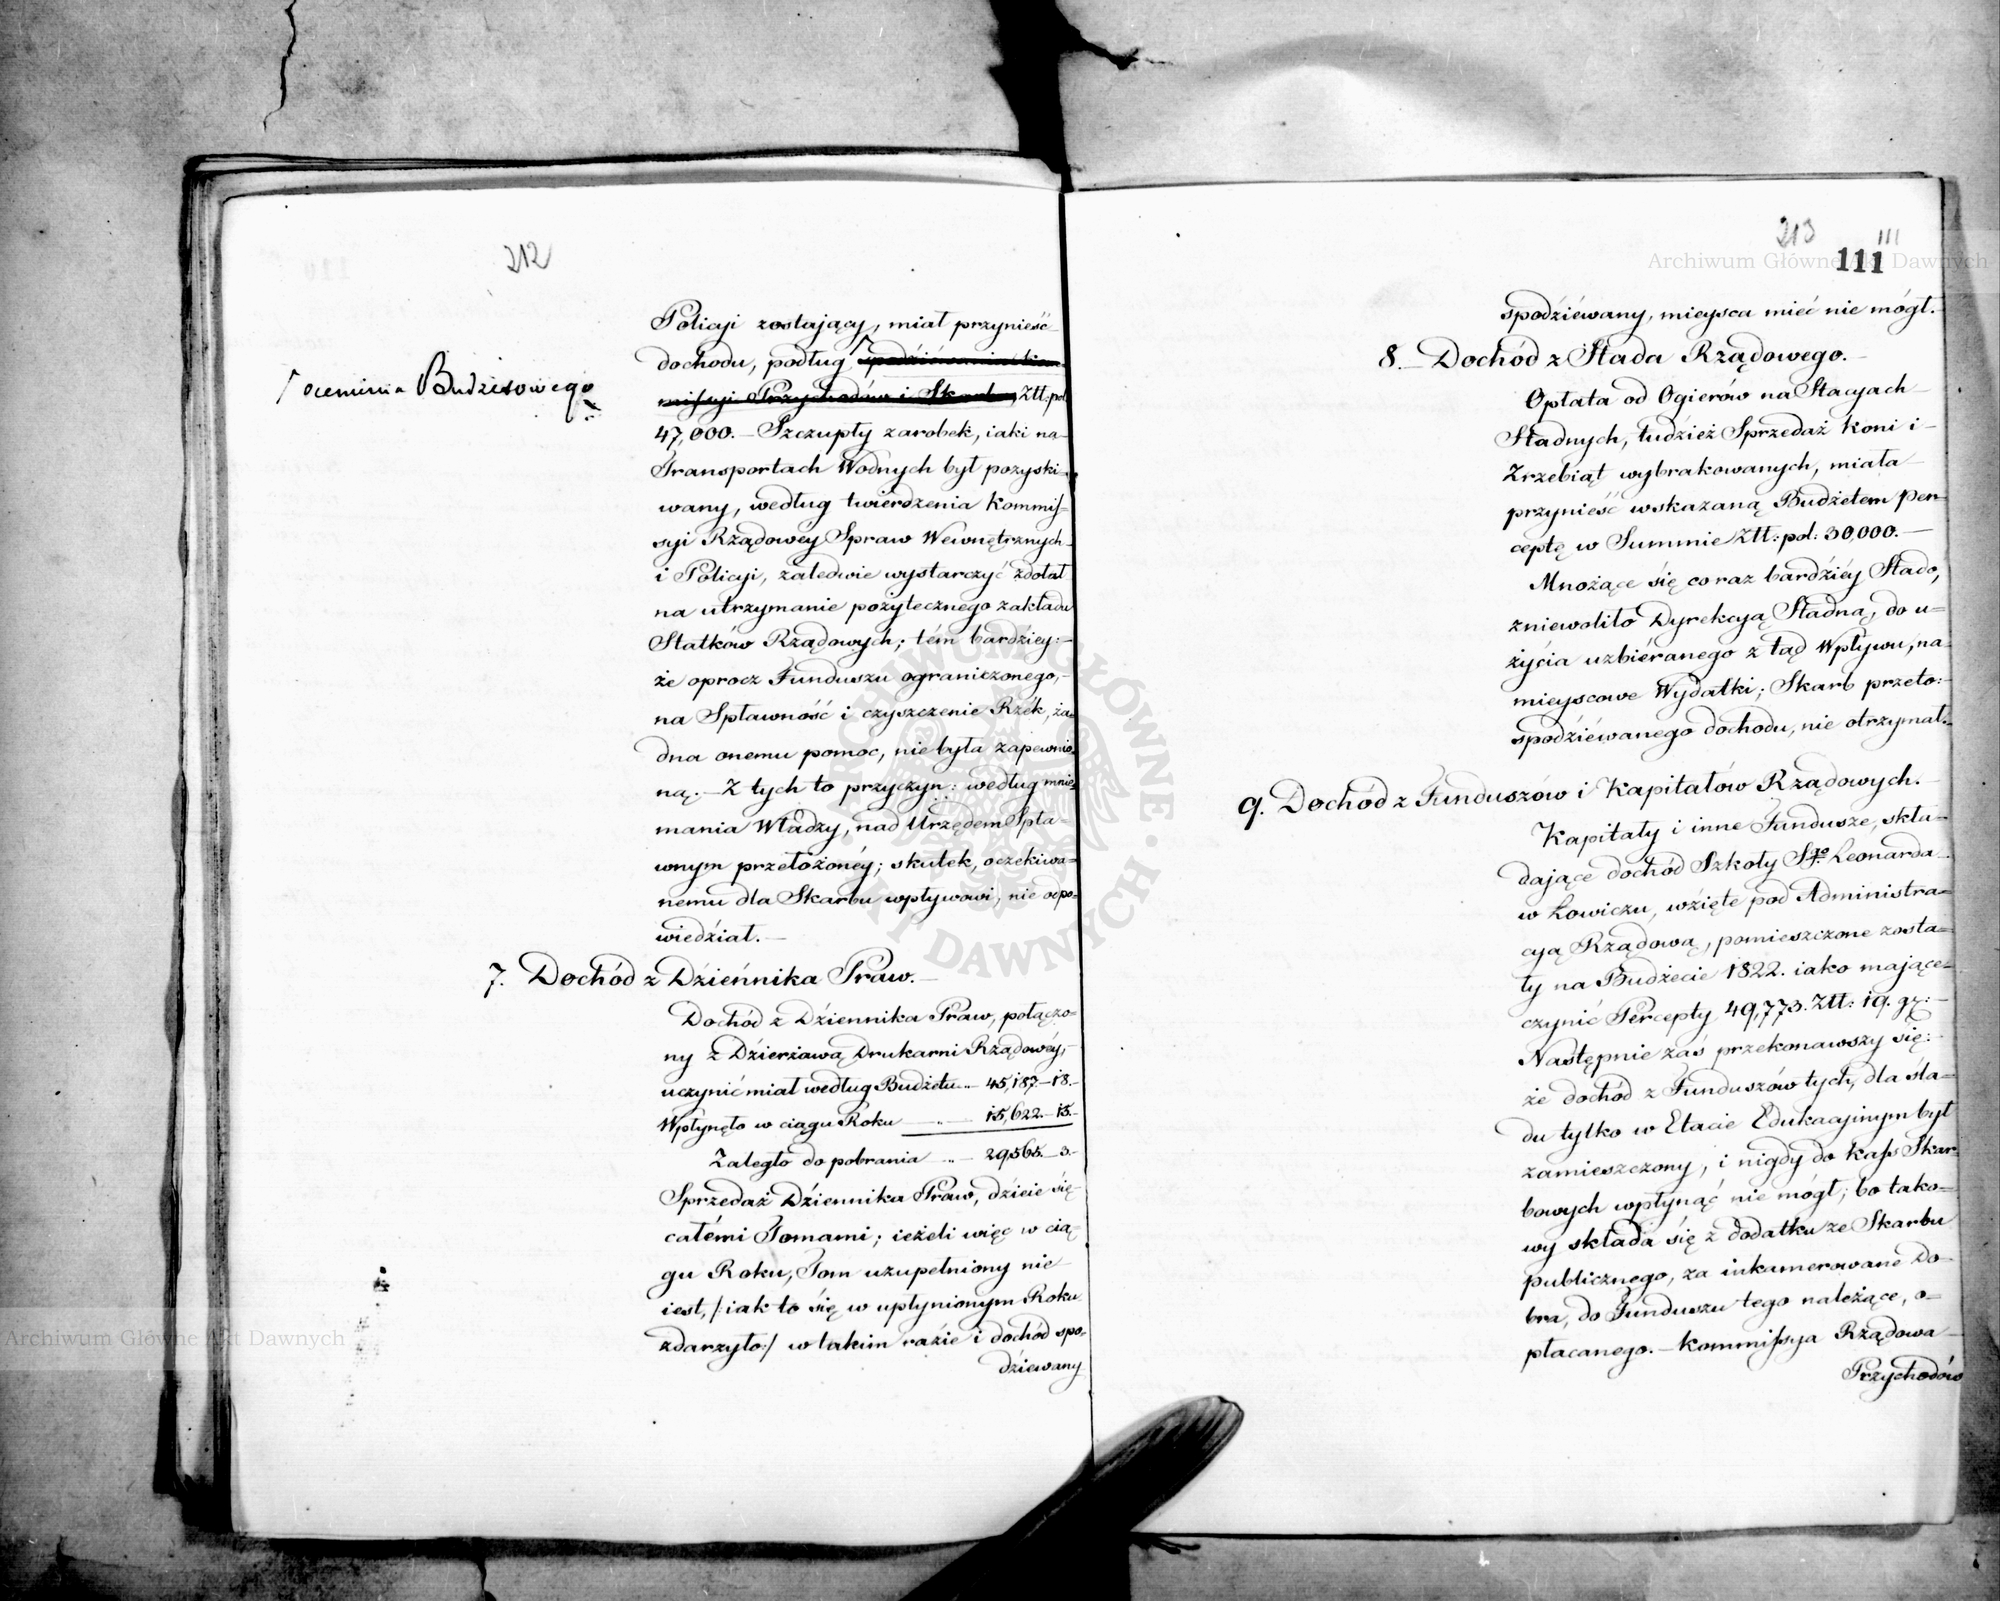 212
Policyi zostający, miał przynieść
dochodu, podług ⌈ spodziéwania Kom
missyi Przychodów i Skarbu, Ztt: pol
⌈ ocenienia Budżetowego
47,000. – Szczupły zarobek, iaki na
Transportach Wodnych był pozyski-
wany, według twierdzenia Kommis-
syi Rządowéy Spraw Wewnętrznych
i Policyi, zaledwie wystarczyć zdołał
na utrzymanie pożytecznego zakładu
Statków Rządowych; tém bardziéy:
że oprocz Funduszu ograniczonego,
na Spławność i czyszczenie Rzék, ża=
dna onemu pomoc, nie była zapewnio=
ną. – Z tych to przyczyn: według mnie=
mania Władzy, nad Urzędem Spła-
wnym przełożonéy; skutek, oczekiwa=
nemu dla Skarbu wpływowi, nie odpo=
wiedział. –
7. Dochód z Dźieńnika Praw. –
Dochód z Dźiennika Praw, połączo-
ny z Dźierżawą Drukarni Rządowéy,
uczynić miał według Budżetu .. 45,187 – 18. –
Wpłynęło w ciągu Roku — .. — 15,622. – 15. –
Zaległo do pobrania .. — 29565. – 3. –
Sprzedaż Dźiennika Praw, dźieie się
całémi Tomami; ieżeli więc w cią
gu Roku, Tom uzupełniony nie
iest, /: iak to się w upłynionym Roku
zdarzyło :/ w takim raźie i dochód spo-
dźiewany
213
111
111
spodźiéwany, mieysca mieć nie mógł. –
8. – Dochód z Stada Rządowego. –
Opłata od Ogierów na Stacyach
Stadnych, tudzież Sprzedaż Koni i
Zrzebiąt wybrakowanych, miała
przynieść wskazaną Budżetem Per=
ceptę w Summie Ztt: pol: 30,000. –
Mnożące się co raz bardźiéy Stado,
zniewoliło Dyrekcyą Stadną, do u=
życia uzbiéranego z tąd Wpływu, na
mieyscowe Wydatki; Skarb przeto:
spodźiéwanego dochodu, nie otrzymał. –
9. Dochód z Funduszów i Kapitałów Rządowych. –
Kapitały i inne Fundusze, skła-
dające dochód Szkoły Sgo Leonarda
w Łowiczu, wźięte pod Administra=
cyą Rządową, pomieszczone zosta=
ły na Budżecie 1822. iako mające
czynić Percepty 49,773. Ztt: 19. gr: –
Następnie zaś przekonawszy się:
że dochód z Funduszów tych, dla śla-
du tylko w Etacie Edukacyinym był
zamieszczony, i nigdy do Kass Skar
bowych wpłynąć nie mógł; bo tako=
wy składa się z dodatku ze Skarbu
publicznego, za inkamerowane Do-
bra, do Funduszu tego należące, o=
płacanego. – Kommissya Rządowa
Przychodów
Archiwum Główne Akt Dawnych
Archiwum Główne Akt Dawnych
ARCHIWUM GŁÓWNE AKT DAWNYCH